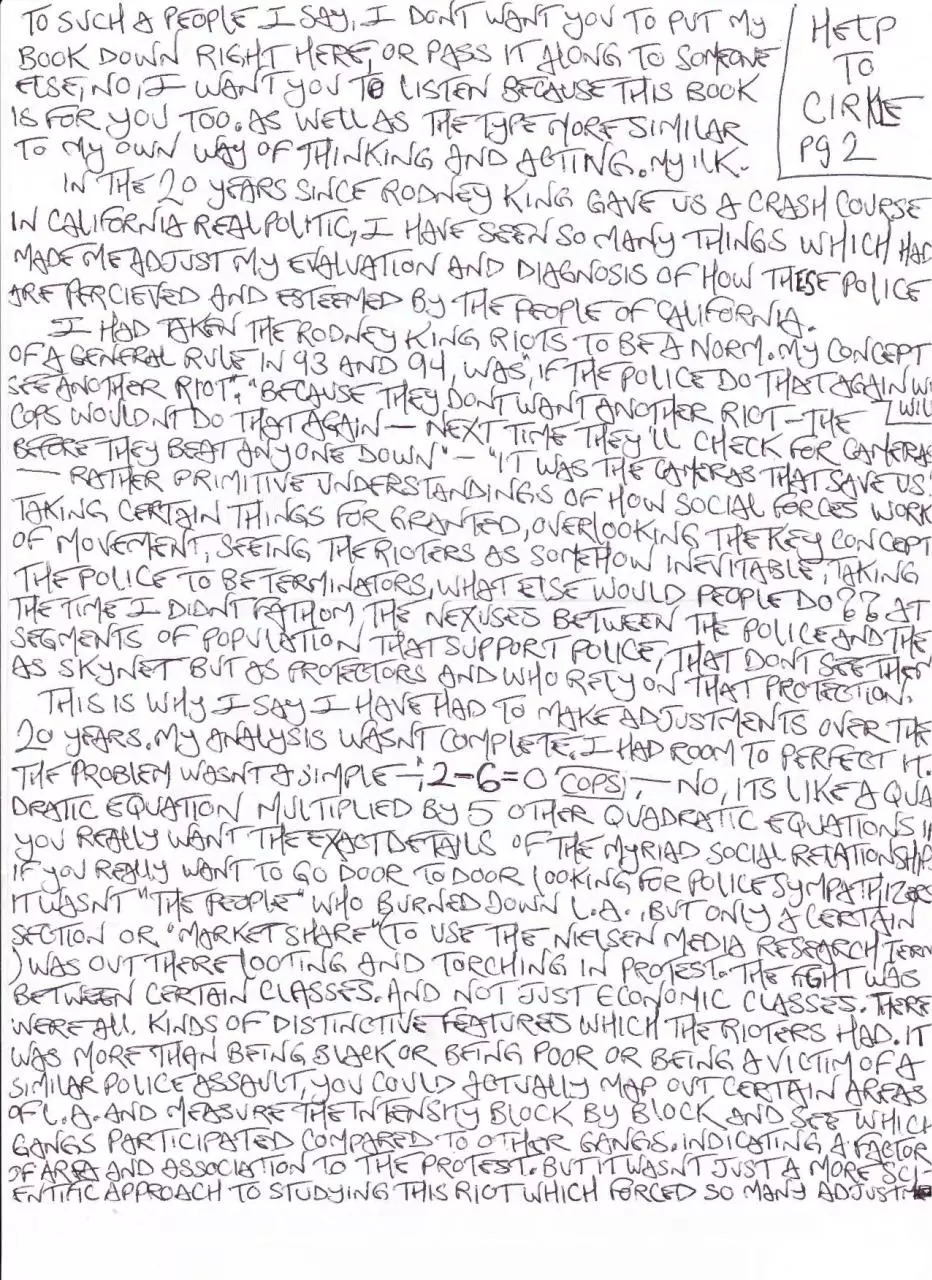 TO SUCH A PEOPLE I SAY, I DONT WANT YOU TO PUT MY
BOOK DOWN RIGHT HERE, OR PASS IT ALONG TO SOMEONE
ELSE, NO, I WANT YOU TO LISTEN BECAUSE THIS BOOK
IS FOR YOU TOO. AS WELL AS THE TYPE MORE SIMILAR
TO MY OWN WAY OF THINKING AND ACTING. MY ILK.
HELP
TO
CIRKLE
Pg 2
IN THE 20 YEARS SINCE RODNEY KING GAVE US A CRASH COURSE
IN CALIFORNIA REALPOLITIC, I HAVE SEEN SO MANY THINGS WHICH HAD
MADE ME ADJUST MY EVALUATION AND DIAGNOSIS OF HOW THESE POLICE
ARE PERCIEVED AND ESTEEMED BY THE PEOPLE OF CALIFORNIA.
I HAD TAKEN THE RODNEY KING RIOTS TO BE A NORM. MY CONCEPT
OF A GENERAL RULE IN 93 AND 94, WAS, "IF THE POLICE DO THAT AGAIN WE
SEE ANOTHER RIOT". "BECAUSE THEY DONT WANT ANOTHER RIOT - THE WILL
COPS WOULDNT DO THAT AGAIN — NEXT TIME THEY'LL CHECK FOR CAMERAS
BEFORE THEY BEAT ANYONE DOWN" - "IT WAS THE CAMERAS THAT SAVE US"
— RATHER PRIMITIVE UNDERSTANDINGS OF HOW SOCIAL FORCES WORK
TAKING CERTAIN THINGS FOR GRANTED, OVERLOOKING THE KEY CONCEPT
OF MOVEMENT, SEEING THE RIOTERS AS SOMEHOW INEVITABLE, TAKING
THE POLICE TO BE TERMINATORS, WHAT ELSE WOULD PEOPLE DO?? AT
THE TIME I DIDNT FATHOM THE NEXUSES BETWEEN THE POLICE AND THE
SEGMENTS OF POPULATION THAT SUPPORT POLICE, THAT DONT SEE THEM
AS SKYNET BUT AS PROTECTORS AND WHO RELY ON THAT PROTECTION.
THIS IS WHY I SAY I HAVE HAD TO MAKE ADJUSTMENTS OVER THE
20 YEARS. MY ANALYSIS WASNT COMPLETE. I HAD ROOM TO PERFECT IT.
THE PROBLEM WASNT A SIMPLE — 2-6=0 COPS, — NO, ITS LIKE A QUA
DRATIC EQUATION MULTIPLIED BY 5 OTHER QUADRATIC EQUATIONS I
YOU REALLY WANT THE EXACT DETAILS OF THE MYRIAD SOCIAL RELATIONSHIP
IF YOU REALLY WANT TO GO DOOR TO DOOR LOOKING FOR POLICE SYMPATHIZERS
IT WASNT "THE PEOPLE" WHO BURNED DOWN L.A., BUT ONLY A CERTAIN
SECTION OR "MARKET SHARE" (TO USE THE NIELSEN MEDIA RESEARCH TERM
) WAS OUT THERE LOOTING AND TORCHING IN PROTEST. THE FIGHT WAS
BETWEEN CERTAIN CLASSES. AND NOT JUST ECONOMIC CLASSES. THERE
WERE ALL KINDS OF DISTINCTIVE FEATURES WHICH THE RIOTERS HAD. IT
WAS MORE THAN BEING BLACK OR BEING POOR OR BEING A VICTIM OF A
SIMILAR POLICE ASSAULT, YOU COULD ACTUALLY MAP OUT CERTAIN AREAS
OF L.A. AND MEASURE THE INTENSITY BLOCK BY BLOCK AND SEE WHICH
GANGS PARTICIPATED COMPARED TO OTHER GANGS. INDICATING A FACTOR
OF AREA AND ASSOCIATION TO THE PROTEST. BUT IT WASNT JUST A MORE SCI-
ENTIFIC APPROACH TO STUDYING THIS RIOT WHICH FORCED SO MANY